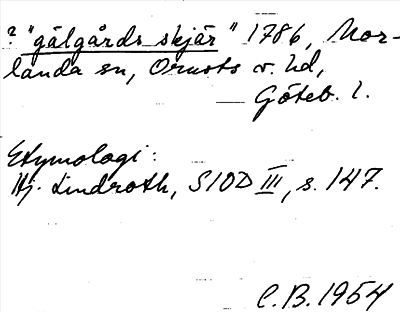 ? "gälgårds skjär" 1786, Mor-
landa sn, Orusts v. hd,
— Göteb. l.
Etymologi:
Hj. Lindroth, SIOD III, s. 147.
C.B. 1954